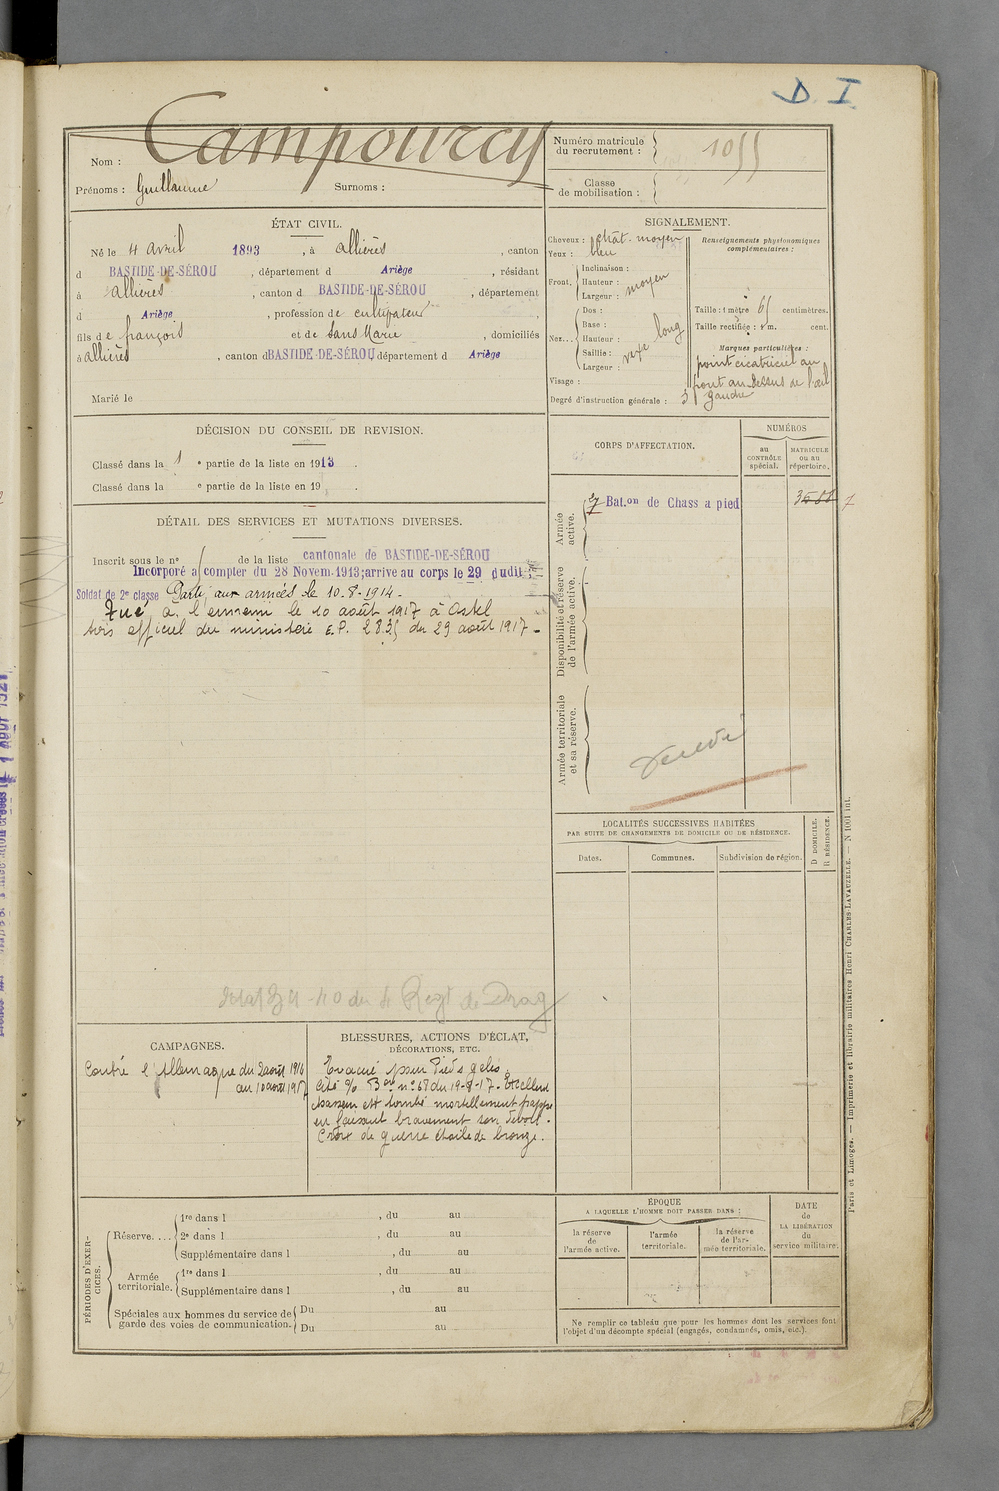 D. I
Nom : Campourcy
Prénoms : Guillaume Surnoms :
Numéro matricule du recrutement : 1055
Classe de mobilisation :
ÉTAT CIVIL.
Né le 4 avril 1893, à Allières, canton
d BASTIDE-DE-SÉROU, département d Ariège, résidant
à Allières, canton d BASTIDE-DE-SÉROU, département
d Ariège, profession de cultivateur,
fils de françois et de Sans Marie, domiciliés
à allières, canton d BASTIDE-DE-SÉROU département d Ariège
Marié le
SIGNALEMENT.
Cheveux : chât. moyen
Yeux : bleu
Front. Inclinaison :
Hauteur : moyen
Largeur :
Nez... Dos :
Base :
Hauteur : long
Saillie :
Largeur :
Visage :
Degré d'instruction générale : 3
Renseignements physionomiques complémentaires :
Taille : 1 mètre 65 centimètres.
Taille rectifiée : 1 m. cent.
Marques particulières :
point cicatriciel au
front au dessus de l'œil
gauche
DÉCISION DU CONSEIL DE REVISION.
Classé dans la 1 e partie de la liste en 1913.
Classé dans la e partie de la liste en 19 .
CORPS D'AFFECTATION.
NUMÉROS
au CONTRÔLE spécial.
MATRICULE ou au répertoire.
Armée active.
Bat.on de Chass a pied
Disponibilité et réserve de l'armée active.
Armée territoriale et sa réserve.
DÉTAIL DES SERVICES ET MUTATIONS DIVERSES.
Inscrit sous le n° de la liste cantonale de BASTIDE-DE-SÉROU
Incorporé à compter du 28 Novem. 1913; arrivé au corps le 29 dudit
Soldat de 2e classe Parti aux armées le 10-8-1914.
Tué à l'ennemi le 10 août 1917 à Ostel
avis officiel du ministère E.P. 2835 du 29 août 1917.
LOCALITÉS SUCCESSIVES HABITÉES
PAR SUITE DE CHANGEMENTS DE DOMICILE OU DE RÉSIDENCE.
Dates. Communes. Subdivision de région. D DOMICILE. R RÉSIDENCE.
du 4 Regt de Drag
CAMPAGNES.
Contre l'Allemagne du 2 août 1914
au 10 août 1917
BLESSURES, ACTIONS D'ÉCLAT,
DÉCORATIONS, ETC.
Evacué pour Pieds gelés.
Cité O/ Bon n° 68 du 19-8-17. Excellent
chasseur est tombé mortellement frappé
en faisant bravement son devoir.
Croix de guerre étoile de bronze.
PÉRIODES D'EXERCICES.
Réserve.... 1re dans l , du au
2e dans l , du au
Supplémentaire dans l , du au
Armée territoriale. 1re dans l , du au
Supplémentaire dans l , du au
Spéciales aux hommes du service de garde des voies de communication. Du au
Du au
ÉPOQUE
A LAQUELLE L'HOMME DOIT PASSER DANS :
la réserve de l'armée active.
l'armée territoriale.
la réserve de l'armée territoriale.
DATE de LA LIBÉRATION du service militaire.
Ne remplir ce tableau que pour les hommes dont les services font
l'objet d'un décompte spécial (engagés, condamnés, omis, etc.).
Paris et Limoges. — Imprimerie et librairie militaires Henri CHARLES-LAVAUZELLE. — N 1001 int.